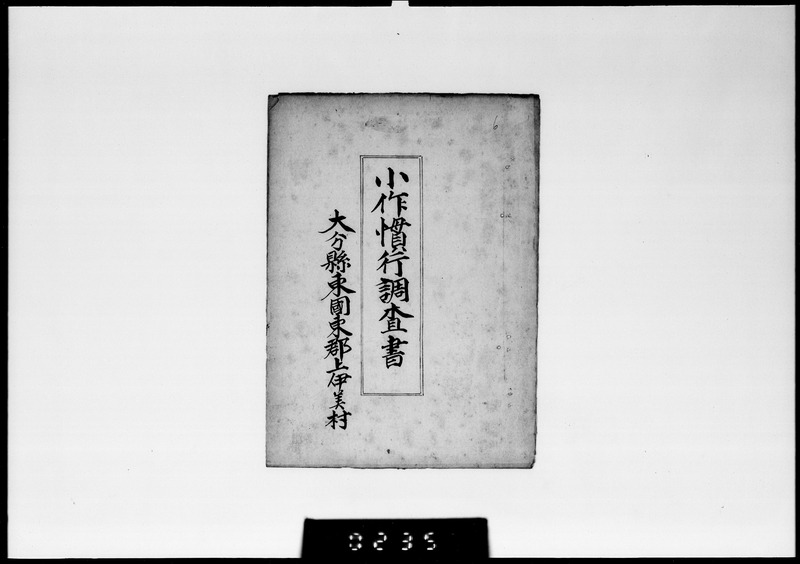 小作慣行調査書
大分縣東國東郡上伊美村
6
0235